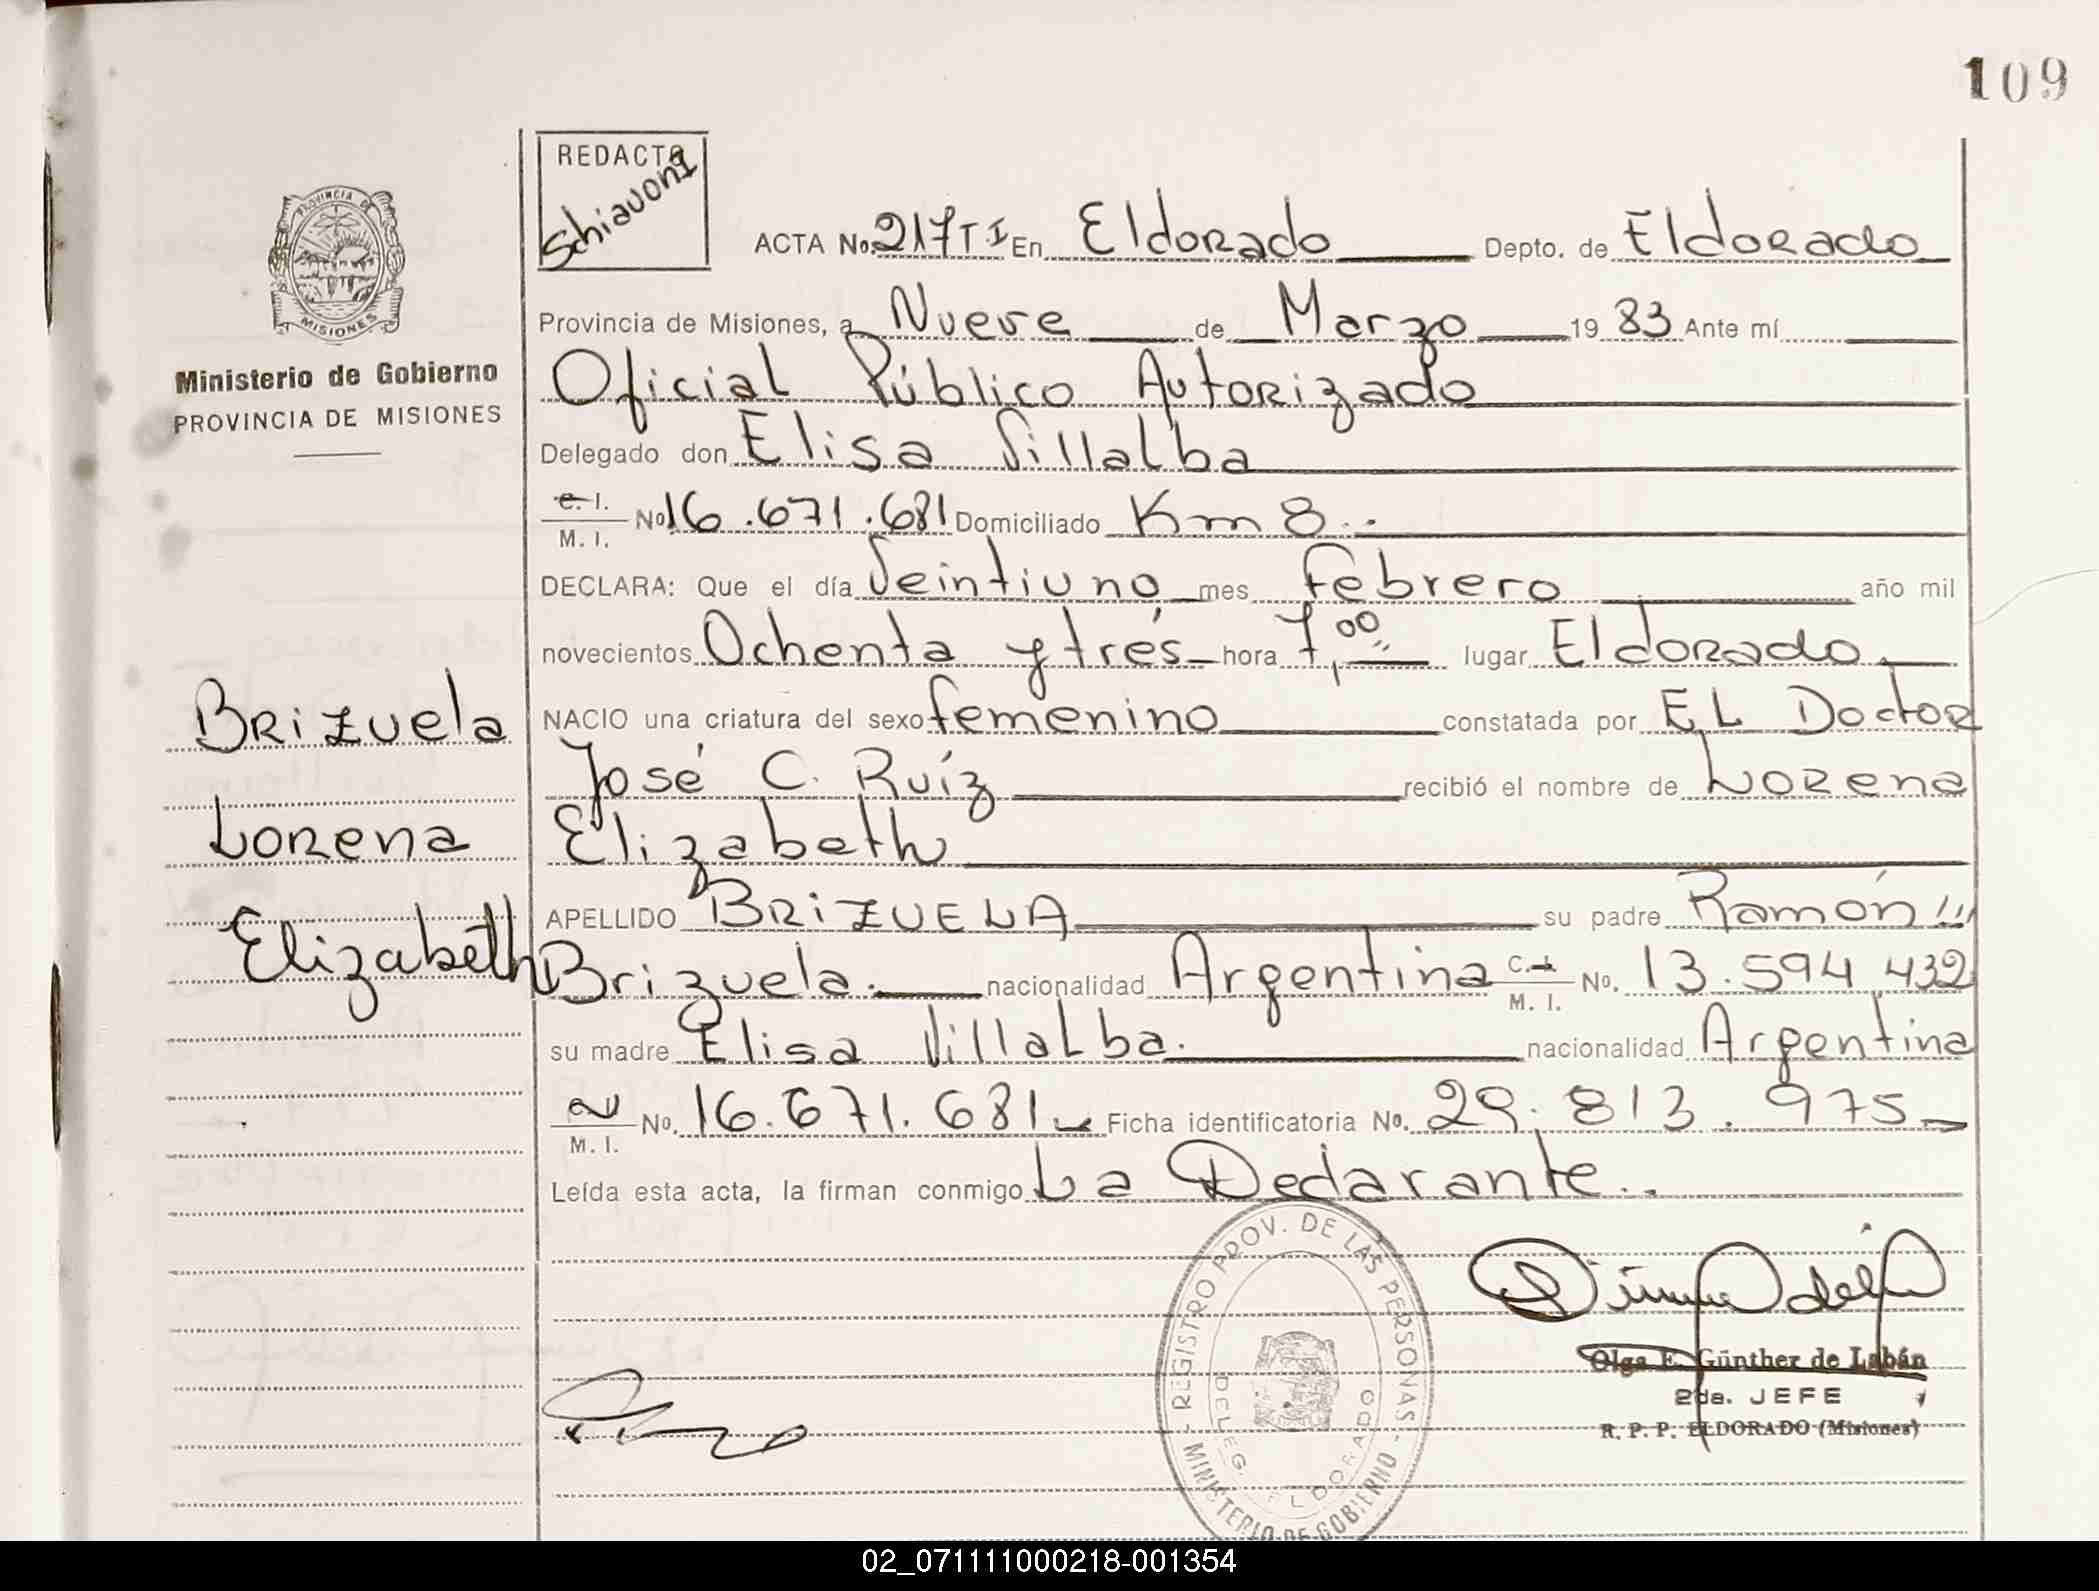 109
PROVINCIA DE
MISIONES
Ministerio de Gobierno
PROVINCIA DE MISIONES
REDACTO
Schiavoni
ACTA No. 217 T I En Eldorado Depto. de Eldorado
Provincia de Misiones, a Nueve de Marzo 19 83 Ante mí
Oficial Público Autorizado
Delegado don Elisa Villalba
C. I.
M. I. No. 16.671.681 Domiciliado Km 8..
DECLARA: Que el día Veintiuno mes Febrero año mil
novecientos Ochenta y trés hora 7,00 lugar Eldorado
NACIO una criatura del sexo femenino constatada por EL Doctor
José C. Ruíz recibió el nombre de Lorena
Elizabeth
APELLIDO BRIZUELA su padre Ramón
Brizuela. nacionalidad Argentina C. I.
M. I. No. 13.594.432
su madre Elisa Villalba. nacionalidad Argentina
M. I. No. 16.671.681 Ficha identificatoria No. 29.813.975
Leída esta acta, la firman conmigo La Declarante..
Brizuela
Lorena
Elizabeth
REGISTRO PROV. DE LAS PERSONAS
DELEG. ELDORADO
MINISTERIO DE GOBIERNO
Olga E. Günther de Labán
2da. JEFE
R. P. P. ELDORADO (Misiones)
02_071111000218-001354